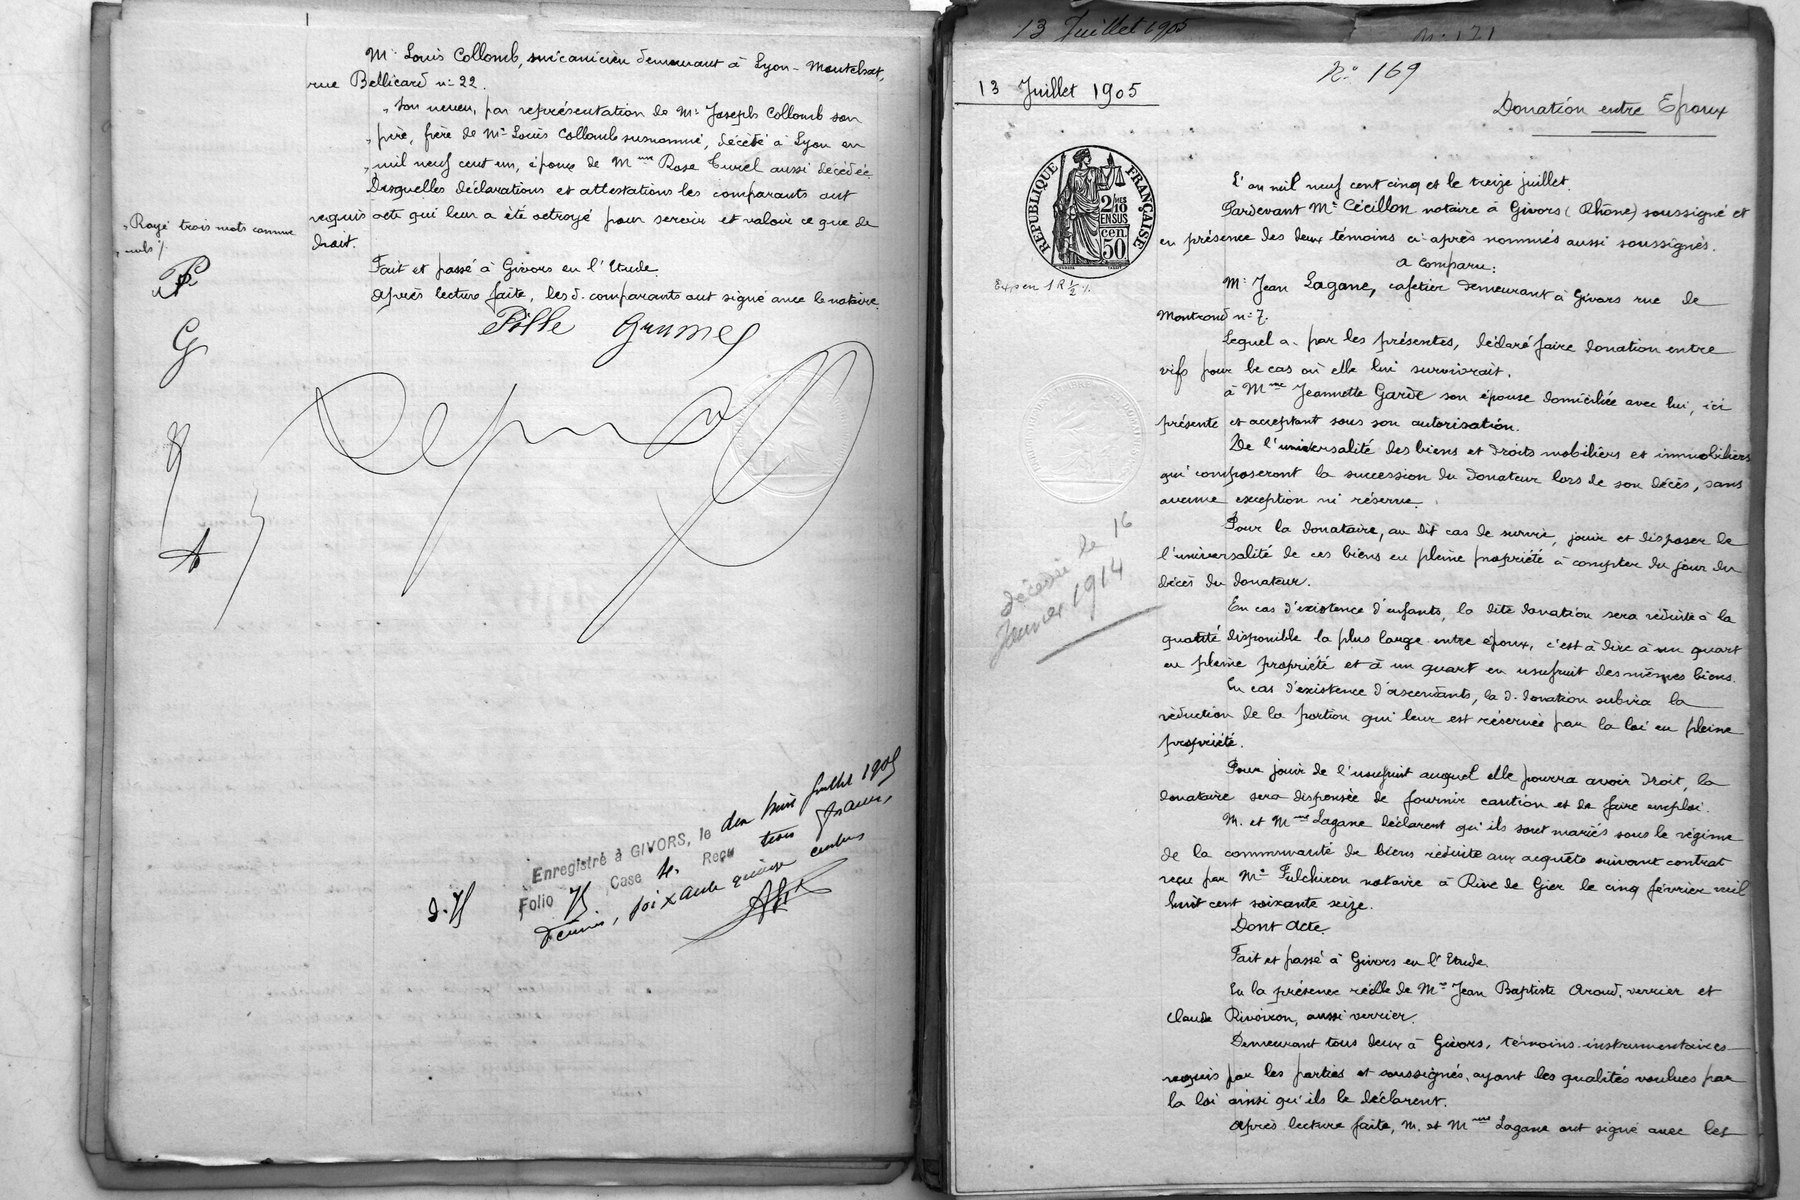 Mr Louis Collomb, mécanicien demeurant à Lyon-Montchat,
rue Bellicard n° 22.
„ Son neveu, par représentation de Mr Joseph Collomb son
„ père, frère de Mr Louis Collomb susnommé, décédé à Lyon en
„ mil neuf cent un, époux de Mme Rose Turel aussi décédée
Desquelles déclarations et attestations les comparants ont
requis acte qui leur a été octroyé pour servir et valoir ce que de
droit.
Fait et passé à Givors en l'Etude.
Après lecture faite, les d. comparants ont signé avec le notaire.
„ Rayé trois mots comme
„ nuls /.
P
G
Pille Grumel
Enregistré à GIVORS, le dix huit juillet 1905
Folio 75 Case 4. Reçu trois francs,
Décimes, soixante quinze centimes
d. 75
13 Juillet 1905
N° 171
N° 169
13 Juillet 1905
Donation entre Epoux
RÉPUBLIQUE FRANÇAISE
2/10
EN SUS
50 cen.
Exp en 1 R ½
L'an mil neuf cent cinq et le treize juillet.
Pardevant Me Cécillon notaire à Givors (Rhône) soussigné et
en présence des deux témoins ci-après nommés aussi soussignés.
A comparu:
Mr Jean Lagane, cafetier demeurant à Givors rue de
Montrond n° 7.
Lequel a par les présentes, déclaré faire donation entre
vifs pour le cas où elle lui survivrait.
à Mme Jeannette Garde son épouse domiciliée avec lui, ici
présente et acceptant sous son autorisation.
De l'universalité des biens et droits mobiliers et immobiliers
qui composeront la succession du donateur lors de son décès, sans
aucune exception ni réserve.
Pour la donataire, au dit cas de survie, jouir et disposer de
l'universalité de ces biens en pleine propriété à compter du jour du
décès du donateur.
décédé le 16
Janvier 1914
En cas d'existence d'enfants, la dite donation sera réduite à la
quotité disponible la plus large entre époux, c'est à dire à un quart
en pleine propriété et à un quart en usufruit des mêmes biens.
En cas d'existence d'ascendants, la d. donation subira la
réduction de la portion qui leur est réservée par la loi en pleine
propriété.
Pour jouir de l'usufruit auquel elle pourra avoir droit, la
donataire sera dispensée de fournir caution et de faire emploi.
M. et Mme Lagane déclarent qu'ils sont mariés sous le régime
de la communauté de biens réduite aux acquêts suivant contrat
reçu par Me Fulchiron notaire à Rive de Gier le cinq février mil
huit cent soixante seize.
Dont Acte.
Fait et passé à Givors en l'Etude.
En la présence réelle de Mrs Jean Baptiste Aroud, verrier et
Claude Rivoiron, aussi verrier.
Demeurant tous deux à Givors, témoins instrumentaires
requis par les parties et soussignés, ayant les qualités voulues par
la loi ainsi qu'ils le déclarent.
Après lecture faite, M. et Mme Lagane ont signé avec les